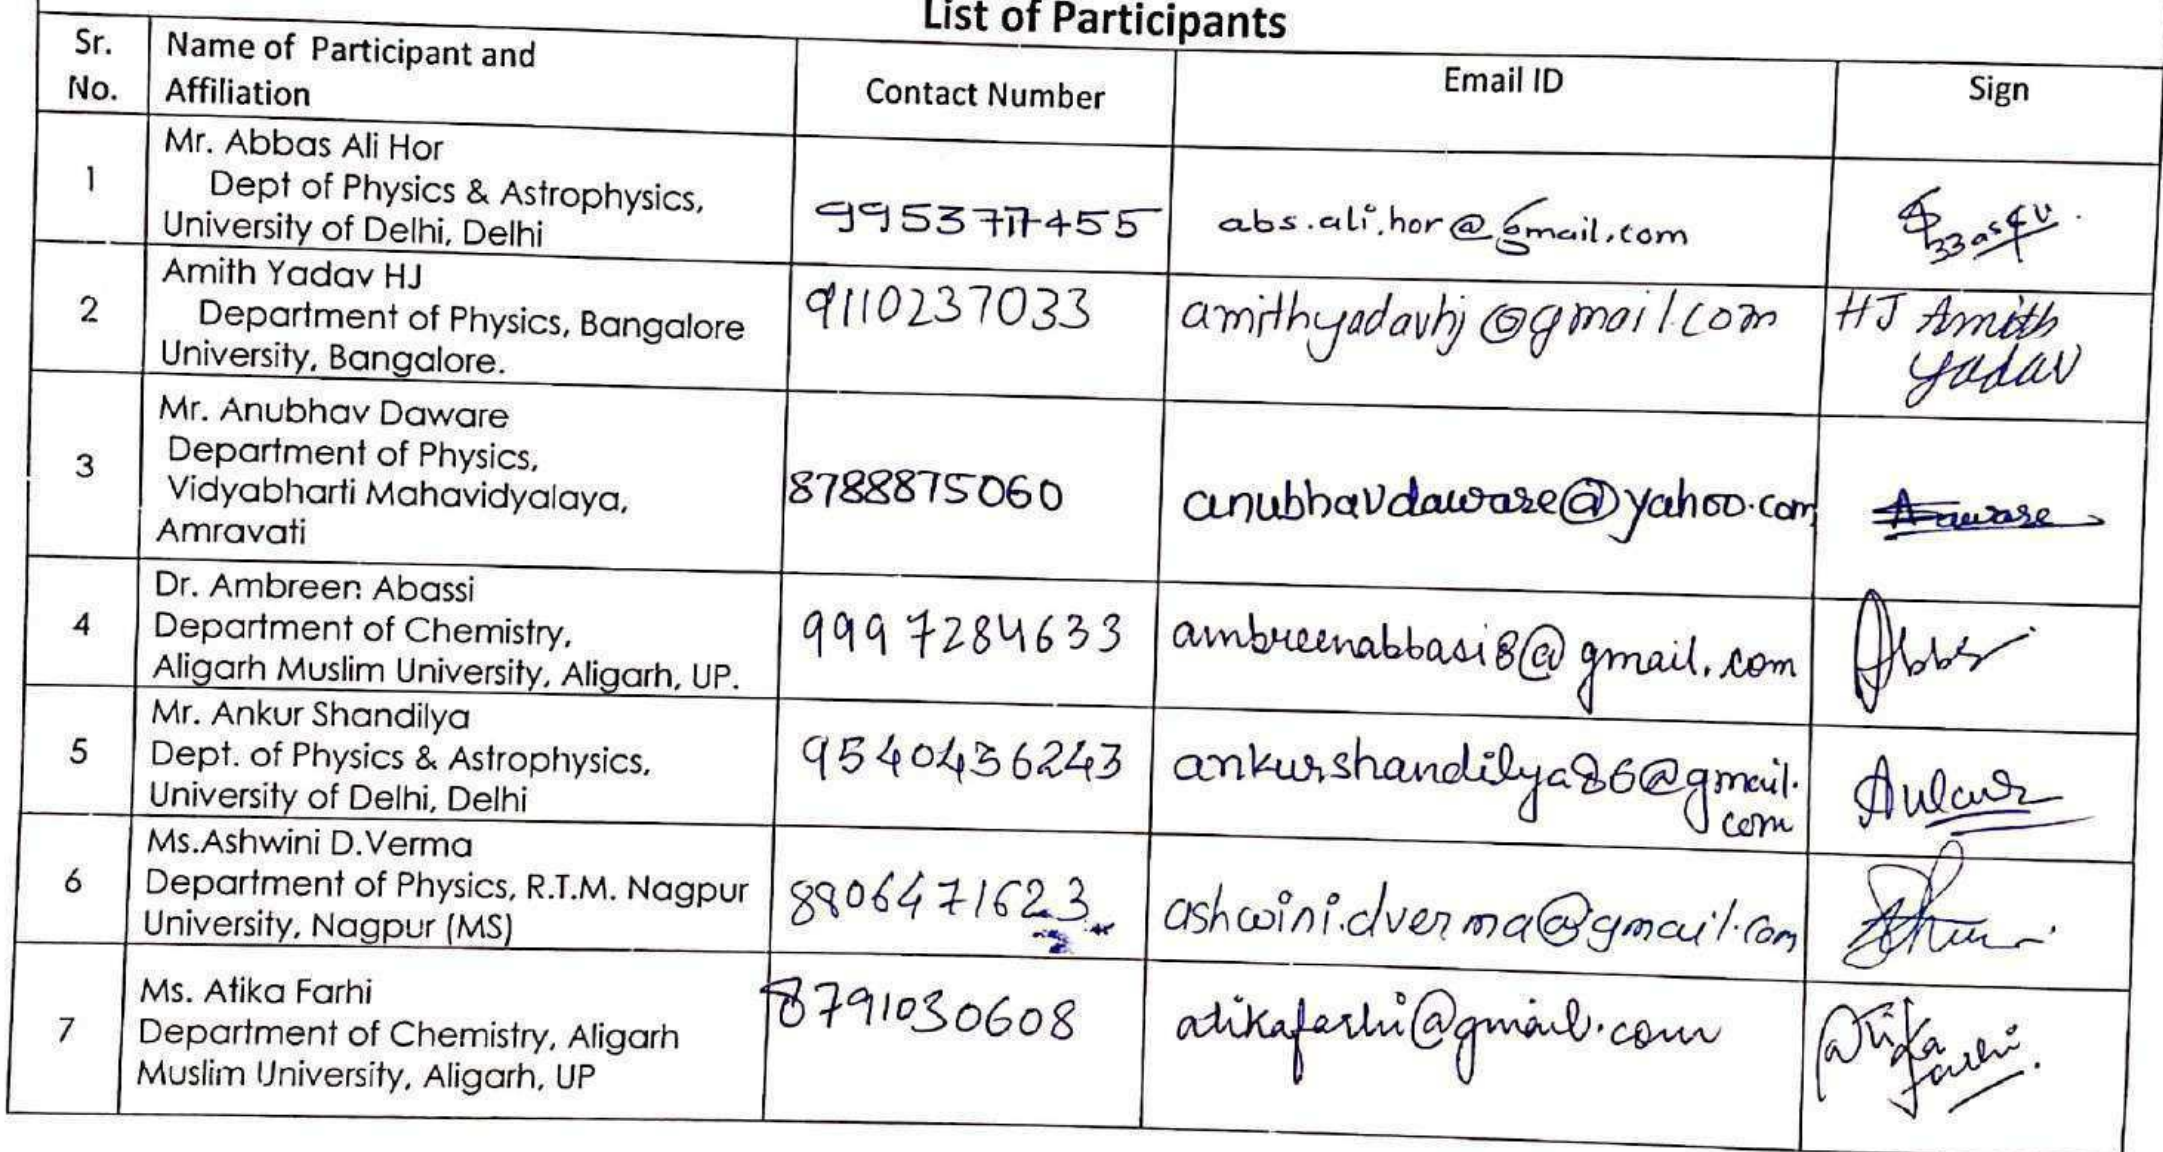 List of Participants
Sr. No.
Name of Participant and Affiliation
Contact Number
Email ID
Sign
1
Mr. Abbas Ali Hor
Dept of Physics & Astrophysics,
University of Delhi, Delhi
abs.ali.hor@gmail.com
2
Amith Yadav HJ
Department of Physics, Bangalore
University, Bangalore.
9110237033
amithyadavhj@gmail.com
HJ Amith
Yadav
3
Mr. Anubhav Daware
Department of Physics,
Vidyabharti Mahavidyalaya,
Amravati
8788875060
anubhavdaware@yahoo.com
4
Dr. Ambreen Abassi
Department of Chemistry,
Aligarh Muslim University, Aligarh, UP.
9997284633
ambreenabbasi8@gmail.com
5
Mr. Ankur Shandilya
Dept. of Physics & Astrophysics,
University of Delhi, Delhi
9540436243
ankurshandilya86@gmail.
com
Ankur
6
Ms.Ashwini D.Verma
Department of Physics, R.T.M. Nagpur
University, Nagpur (MS)
8806471623
ashwini.dverma@gmail.com
7
Ms. Atika Farhi
Department of Chemistry, Aligarh
Muslim University, Aligarh, UP
8791030608
atikafarhi@gmail.com
Atika
Farhi